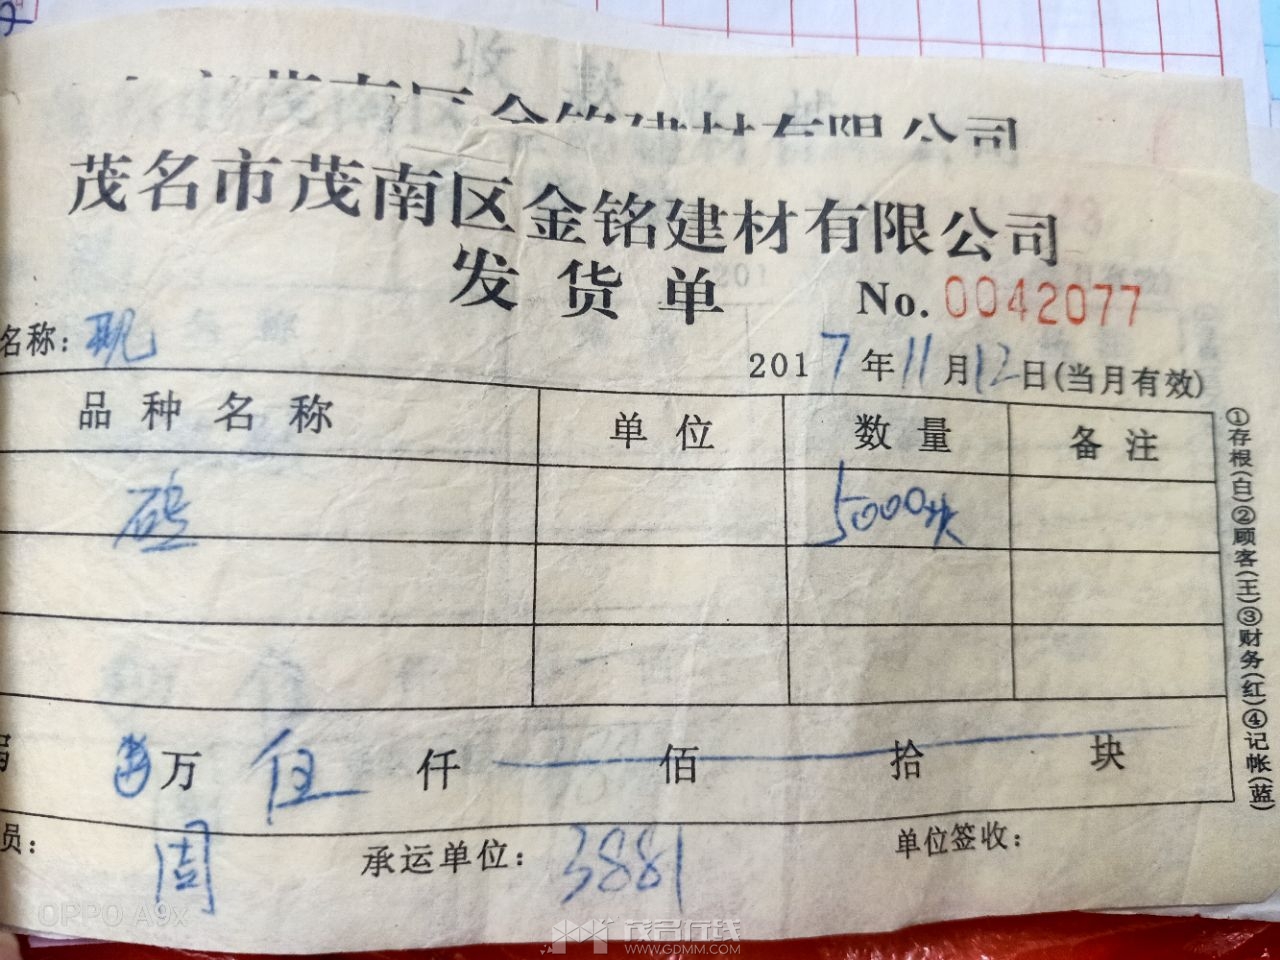 收款
茂南区金铭建材有限公司
茂名市茂南区金铭建材有限公司
发货单 No. 0042077
名称: 现 2017年11月12日(当月有效)
品种名称 单位 数量 备注
砖 5000块
万 伍 仟 佰 拾 块
员: 周 承运单位: 3881 单位签收:
①存根(白)②顾客(王)③财务(红)④记帐(蓝)
OPPO A9x
茂名在线
WWW.GDMM.COM